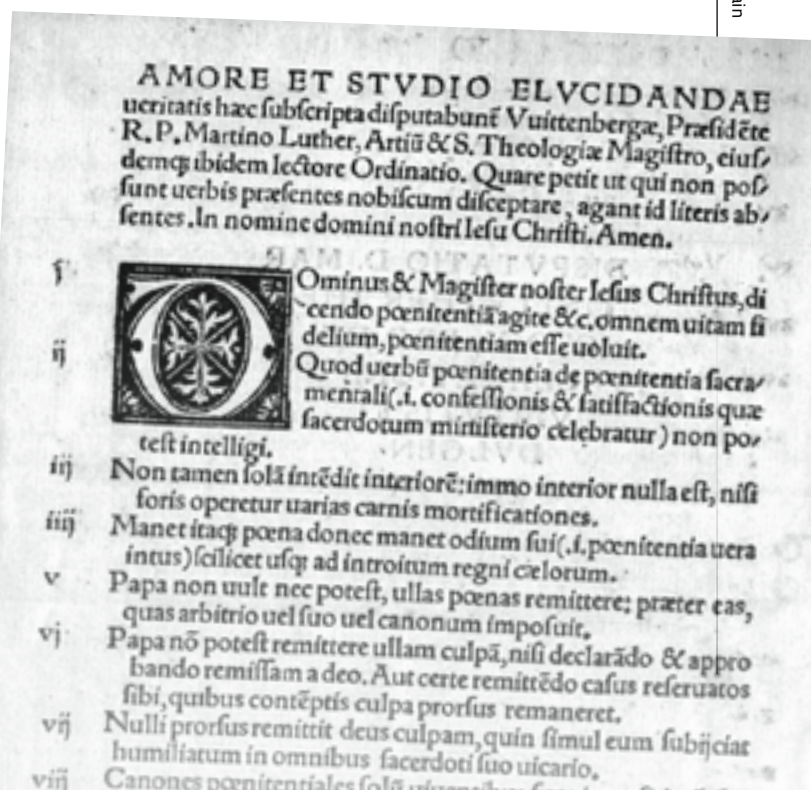 ain
AMORE ET STVDIO ELVCIDANDAE
ueritatis hæc subscripta disputabunt̃ Vuittenbergæ, Præsidẽte
R.P. Martino Luther, Artiũ & S. Theologiæ Magistro, eius-
demqꝫ ibidem lectore Ordinatio. Quare petit ut qui non pos-
sunt uerbis præsentes nobiscum disceptare, agant id literis ab-
sentes. In nomine domini nostri Iesu Christi. Amen.
j Ominus & Magister noster Iesus Christus, di
cendo pœnitentiã agite &c. omnem uitam fi
delium, pœnitentiam esse uoluit.
ij Quod uerbũ pœnitentia de pœnitentia sacra-
mentali (.i. confessionis & satisfactionis quæ
sacerdotum ministerio celebratur) non po-
test intelligi.
iij Non tamen solã intẽdit interiorẽ: immo interior nulla est, nisi
foris operetur uarias carnis mortificationes.
iiij Manet itaqꝫ pœna donec manet odium sui (.i. pœnitentia uera
intus) scilicet usqꝫ ad introitum regni cælorum.
v Papa non uult nec potest, ullas pœnas remittere; præter eas,
quas arbitrio uel suo uel canonum imposuit.
vj Papa nõ potest remittere ullam culpã, nisi declarãdo & appro
bando remissam a deo. Aut certe remittẽdo casus reseruatos
sibi, quibus contẽptis culpa prorsus remaneret.
vij Nulli prorsus remittit deus culpam, quin simul eum subijciat
humiliatum in omnibus sacerdoti suo uicario.
viij Canones pœnitentiales solũ